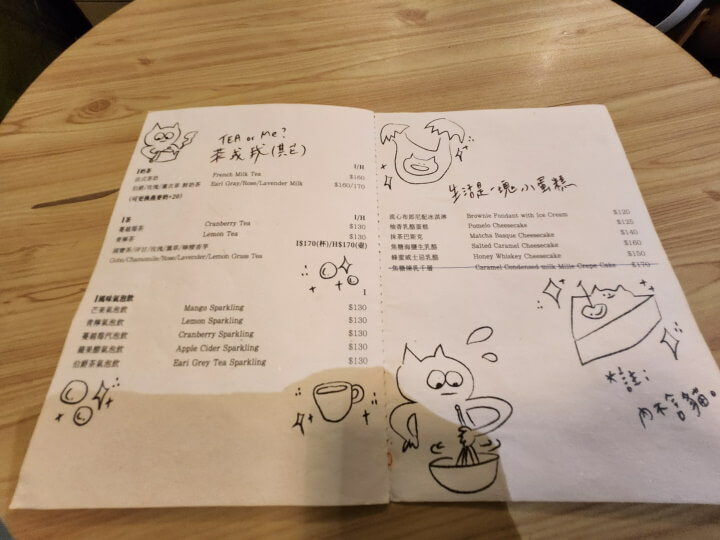 TEA or Me?
茶或我(其它)
奶茶 I/H
法式奶茶 French Milk Tea $160
伯爵/玫瑰/薰衣草 鮮奶茶 Earl Gray/Rose/Lavender Milk $160/170
(可更換燕麥奶+20)
茶 I/H
蔓越莓茶 Cranberry Tea $130
青檸茶 Lemon Tea $130
國寶茶/洋甘/玫瑰/薰草/檸檬香茅 I$170(杯)/H$170(壺)
Gobu/Chamomile/Rose/Lavender/Lemon Grass Tea
風味氣泡飲 I
芒果氣泡飲 Mango Sparkling $130
青檸氣泡飲 Lemon Sparkling $130
蔓越莓汽泡飲 Cranberry Sparkling $130
蘋果醋氣泡飲 Apple Cider Sparkling $130
伯爵茶氣泡飲 Earl Grey Tea Sparkling $130
生活是一塊小蛋糕
流心布朗尼配冰淇淋 Brownie Fondant with Ice Cream $120
柚香乳酪蛋糕 Pomelo Cheesecake $125
抹茶巴斯克 Matcha Basque Cheesecake $140
焦糖海鹽生乳酪 Salted Caramel Cheesecake $160
蜂蜜威士忌乳酪 Honey Whiskey Cheesecake $150
焦糖煉乳千層 Caramel Condensed milk Mille Crepe Cake $170
*註:
內不含貓。